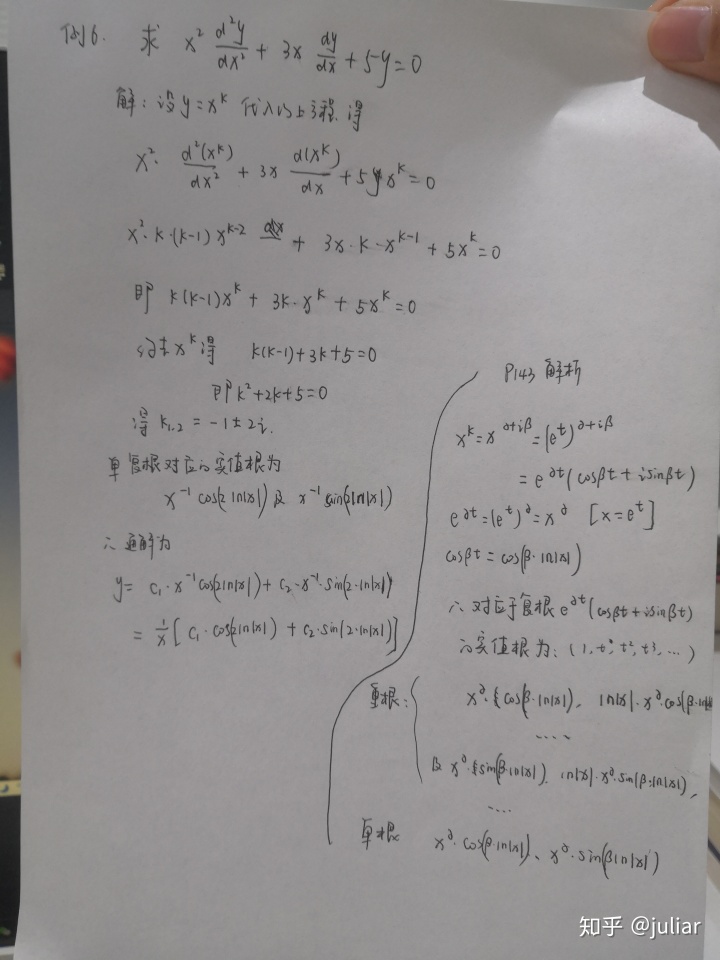 例6. 求 x² d²y/dx² + 3x dy/dx + 5y = 0
解：设 y = x^k 代入以上方程 得
x²· d²(x^k)/dx² + 3x d(x^k)/dx + 5 x^k = 0
x²·k·(k-1) x^(k-2) + 3x·k·x^(k-1) + 5x^k = 0
即 k(k-1)x^k + 3k·x^k + 5x^k = 0
约去 x^k 得 k(k-1)+3k+5=0
即 k²+2k+5=0
得 k₁.₂ = -1 ± 2i.
单复根对应的实值根为
x⁻¹ cos(2 ln|x|) 及 x⁻¹ sin(2 ln|x|)
∴ 通解为
y = c₁·x⁻¹ cos(2 ln|x|) + c₂·x⁻¹·sin(2·ln|x|)
= 1/x [ c₁·cos(2 ln|x|) + c₂·sin(2·ln|x|) ]
P143 解析
x^k = x^(∂+iβ) = (e^t)^(∂+iβ)
= e^(∂t) (cosβt + i sinβt)
e^(∂t) = (e^t)^∂ = x^∂ [x = e^t]
cosβt = cos(β·ln|x|)
∴ 对应于复根 e^(∂t) (cosβt + i sinβt)
的实值根为：(1, t, t², t³, …)
重根： x^∂·cos(β·ln|x|), ln|x|·x^∂·cos(β·ln
····
及 x^∂·sin(β·ln|x|), ln|x|·x^∂·sin(β·ln|x|),
····
单根 x^∂·cos(β·ln|x|)、x^∂·sin(β ln|x|)
知乎 @juliar